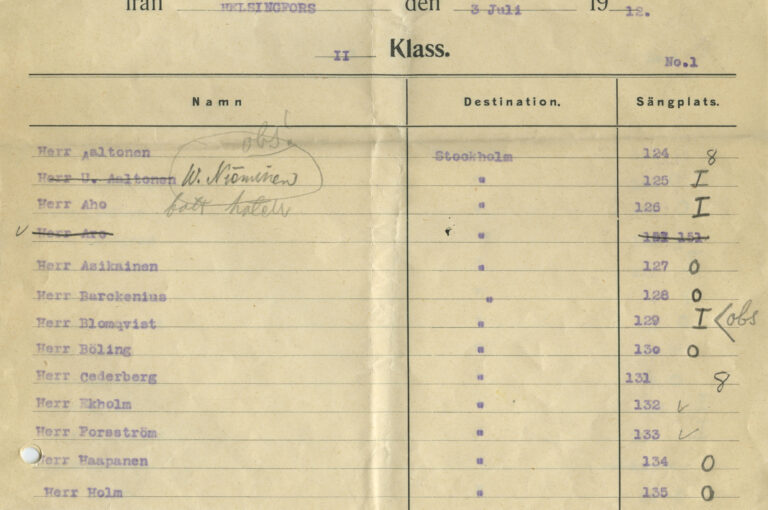 från HELSINGFORS den 3 Juli 1912.
II Klass.
No.1
Namn Destination. Sängplats.
obs!
Herr Aaltonen Stockholm 124 8
Herr U. Aaltonen W. Nieminen " 125 I
Herr Aho " 126 I
✓ Herr Aro " 151
Herr Asikainen " 127 0
Herr Barckenius " 128 0
Herr Blomqvist " 129 I < obs
Herr Böling " 130 0
Herr Cederberg " 131 8
Herr Ekholm " 132 ✓
Herr Forsström " 133 ✓
Herr Haapanen " 134 0
Herr Holm " 135 0